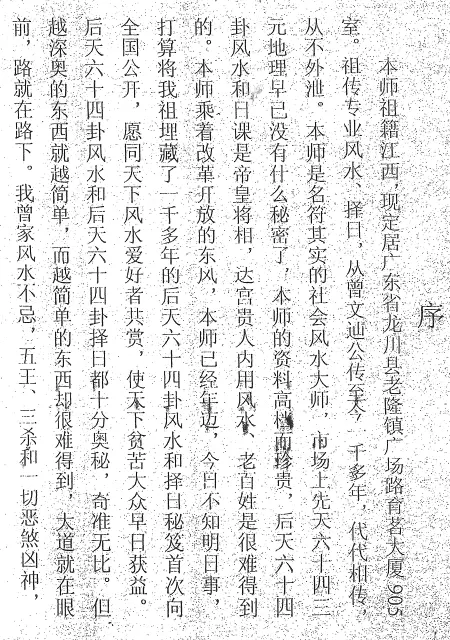 序
本师祖籍江西,现定居广东省龙川县老隆镇广场路育茗大厦905
室。祖传专业风水、择日，从曾文辿公传至今，千多年，代代相传，
从不外泄。本师是名符其实的社会风水大师，市场上先天六十四三
元地理早已没有什么秘密了，本师的资料高档而珍贵，后天六十四
卦风水和日课是帝皇将相，达官贵人内用风水、老百姓是很难得到
的。本师乘着改革开放的东风，本师已经年迈，今日不知明日事，
打算将我祖埋藏了一千多年的后天六十四卦风水和择日秘笈首次向
全国公开，愿同天下风水爱好者共赏，使天下贫苦大众早日获益。
后天六十四卦风水和后天六十四卦择日都十分奥秘，奇准无比。但
越深奥的东西就越简单，而越简单的东西却很难得到，大道就在眼
前，路就在路下。我曾家风水不忌，五王、三杀和一切恶煞凶神，